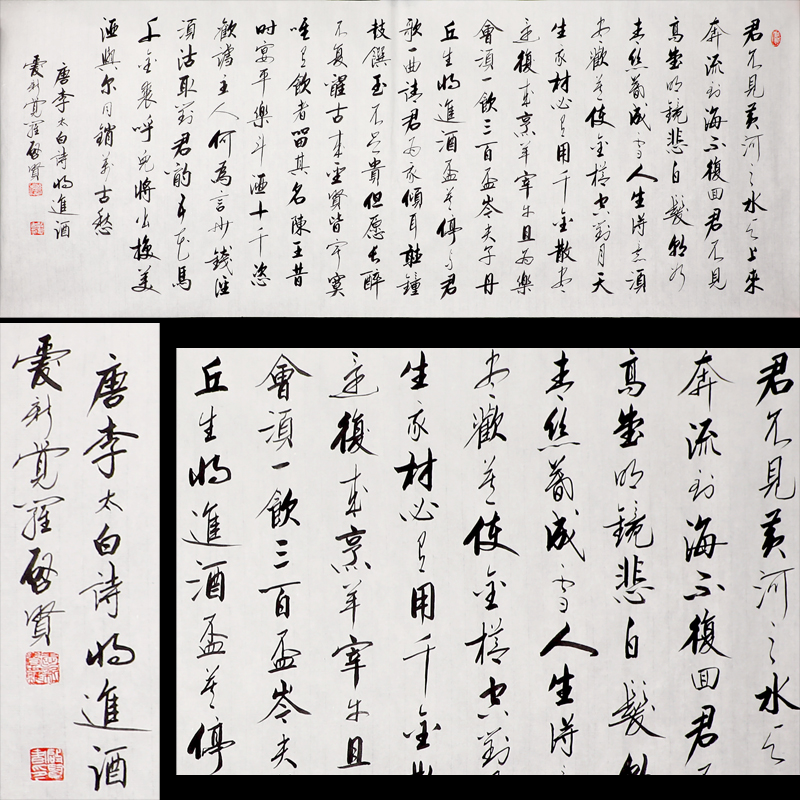 君不見黃河之水天上來
奔流到海不復回君不見
高堂明鏡悲白髮朝如
青絲暮成雪人生得意須
盡歡莫使金樽空對月天
生我材必有用千金散盡
還復來烹羊宰牛且為樂
會須一飲三百盃岑夫子丹
丘生將進酒盃莫停與君
歌一曲請君為我傾耳聽鐘
鼓饌玉不足貴但愿長醉
不復醒古來聖賢皆寂寞
唯有飲者留其名陳王昔
時宴平樂斗酒十千恣
歡謔主人何為言少錢徑
須沽取對君酌五花馬
千金裘呼兒將出換美
酒與尔同銷萬古愁
唐李太白詩將進酒
愛新覺羅啓賢
唐李太白詩將進酒
愛新覺羅啓賢
君不見黃河之水天
奔流到海不復回君不
高堂明鏡悲白髮朝
青絲暮成雪人生得
盡歡莫使金樽空對
生我材必有用千金散
還復來烹羊宰牛且
會須一飲三百盃岑夫
丘生將進酒盃莫停